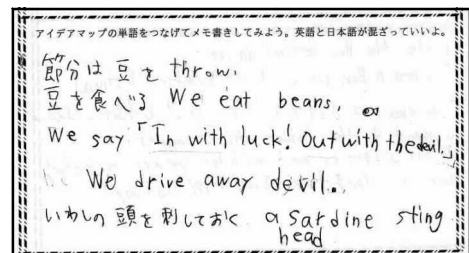 アイデアマップの単語をつなげてメモ書きしてみよう。英語と日本語が混ざっていいよ。
節分は豆を throw.
豆を食べる We eat beans.
We say 「In with luck! Out with the devil.」
We drive away devil.
いわしの頭を刺しておく a sardine sting
head